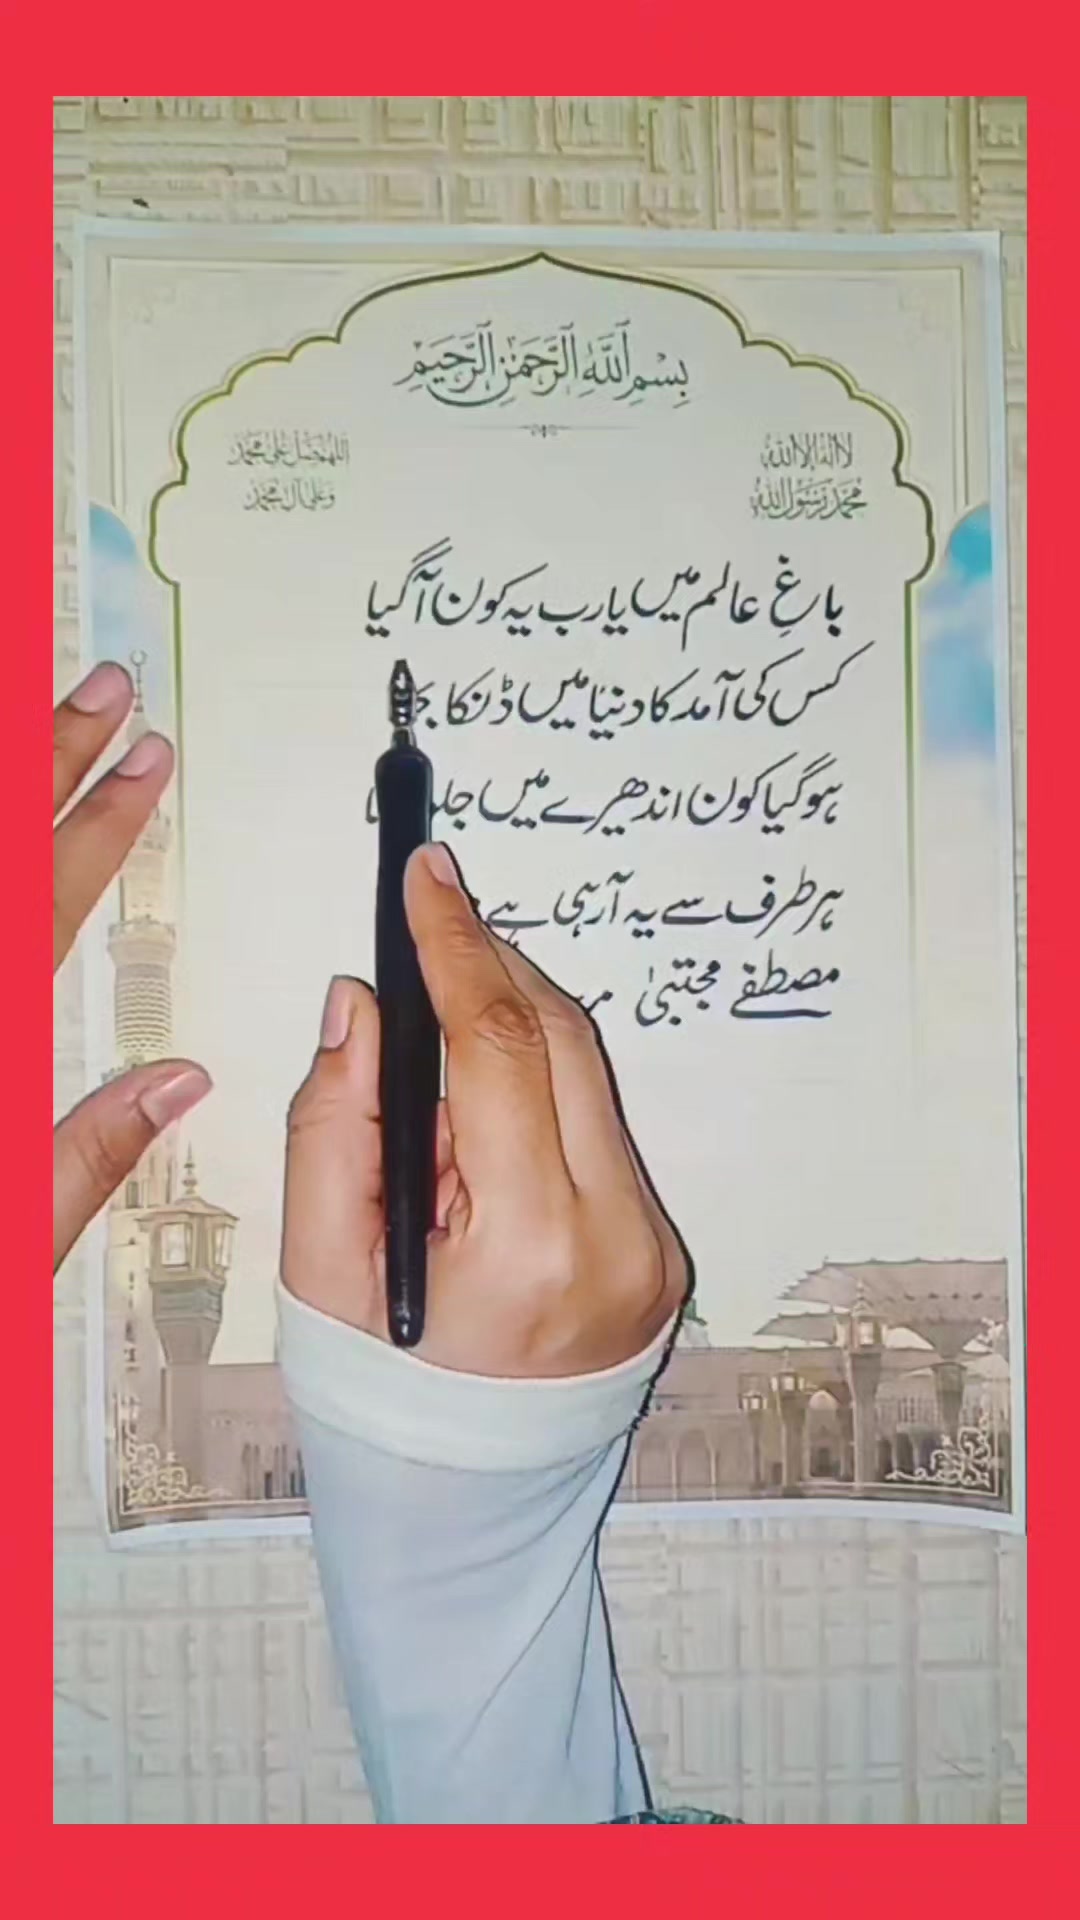 بِسْمِ اللّٰهِ الرَّحْمٰنِ الرَّحِيْمِ
لا اله الا الله
محمد رسول الله
اللهم صل على محمد
وعلى آل محمد
باغِ عالم میں یا رب یہ کون آگیا
کس کی آمد کا دنیا میں ڈنکا
ہوگیا کون اندھیرے میں
ہر طرف سے یہ آرہی ہے
مصطفےٰ مجتبیٰ